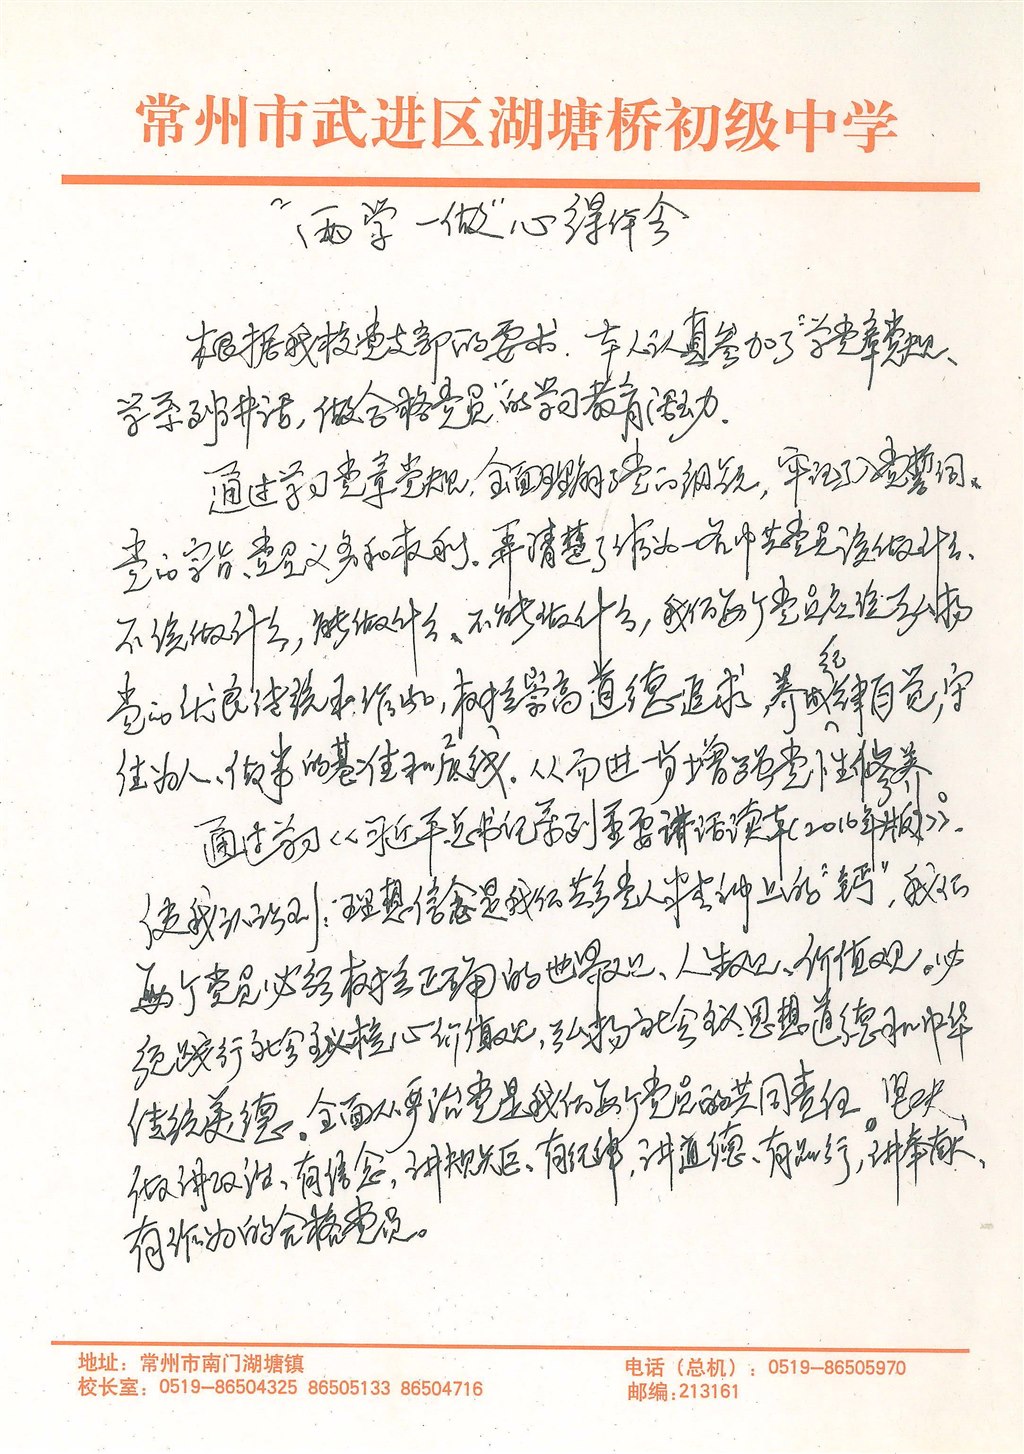 常州市武进区湖塘桥初级中学
“两学一做”心得体会
根据我校党支部的要求，本人认真参加了“学党章党规、
学系列讲话，做合格党员”的学习教育活动。
通过学习党章党规，全面理解了党的纲领，牢记了入党誓词、
党的宗旨、党员义务和权利。弄清楚了作为一名中共党员该做什么、
不该做什么，能做什么、不能做什么，我们每个党员应该弘扬
党的优良传统和作风，树立崇高道德追求，养成纪律自觉，守
住为人、做事的基准和底线。从而进一步增强党性修养。
通过学习《习近平总书记系列重要讲话读本（2016年版）》。
使我认识到：理想信念是我们共产党人精神上的“钙”，我们
每个党员必须树立正确的世界观、人生观、价值观。必
须践行社会主义核心价值观，弘扬社会主义思想道德和中华
传统美德。全面从严治党是我们每个党员的共同责任。坚决
做讲政治、有信念，讲规矩、有纪律，讲道德、有品行，讲奉献、
有作为的合格党员。
地址：常州市南门湖塘镇
校长室：0519-86504325 86505133 86504716
电话（总机）：0519-86505970
邮编：213161